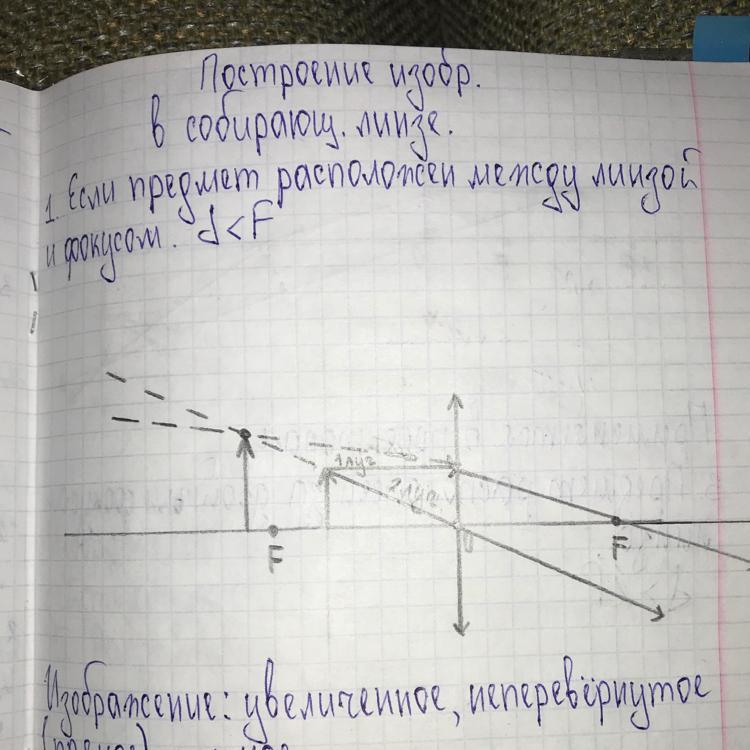 Построение изобр.
в собирающ. линзе.
1. Если предмет расположен между линзой
и фокусом. d<F
1 луч
2 луч
F
O
F
Изображение: увеличенное, неперевёрнутое